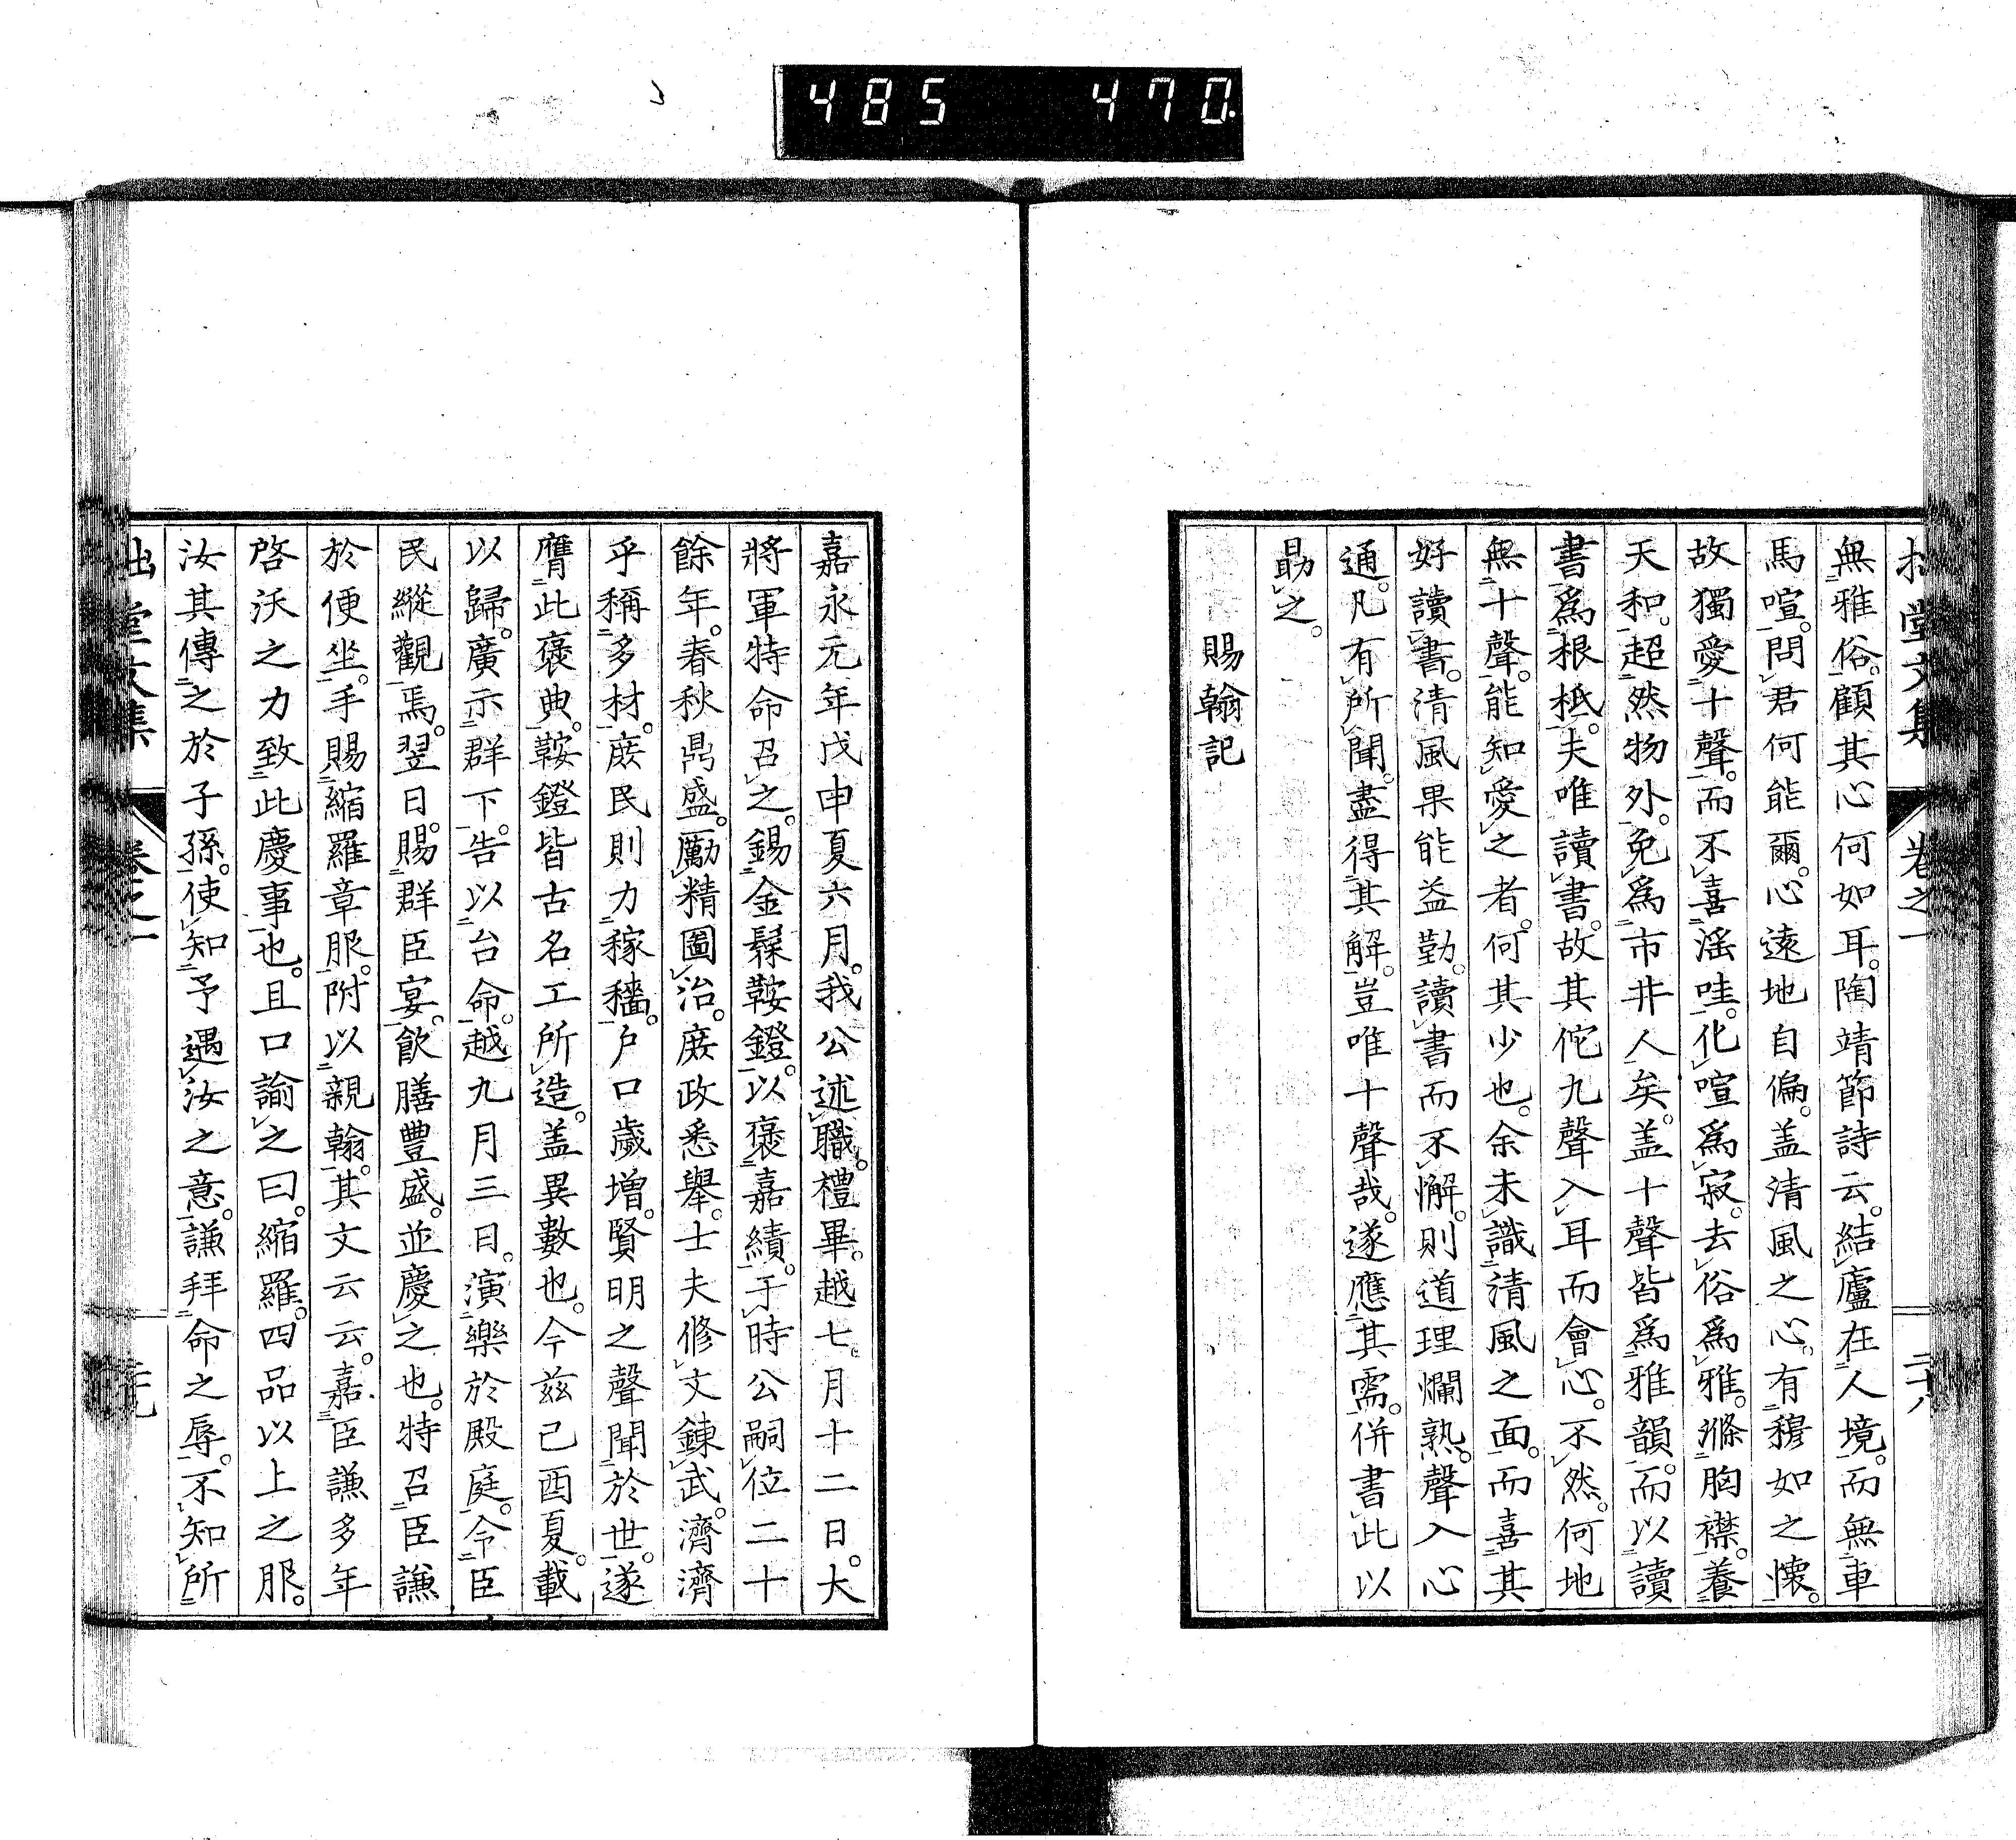 485 470
堂文集 卷之一 二十八
無雅俗。顧其心何如耳。陶靖節詩云。結廬在人境。而無車
馬喧。問君何能爾。心遠地自偏。盖清風之心。有穆如之懷。
故獨愛十聲。而不喜滛哇。化喧爲寂。去俗爲雅。滌胸襟。養
天和。超然物外。免爲市井人矣。盖十聲皆爲雅韻。而以讀
書爲根柢。夫唯讀書。故其佗九聲入耳而會心。不然。何地
無十聲。能知愛之者。何其少也。余未識清風之面。而喜其
好讀書。清風果能益勤。讀書而不懈。則道理爛熟。聲入心
通。凡有所聞。盡得其解。豈唯十聲哉。遂應其需。併書此以
勗之。
賜翰記
嘉永元年戊申夏六月。我公述職。禮畢。越七月十二日。大
將軍特命召之。錫金髹鞍鐙。以褒嘉績。于時公嗣位二十
餘年。春秋鼎盛。勵精圖治。庶政悉舉。士夫修文鍊武。濟濟
乎稱多材。庶民則力稼穡。戶口歲增。賢明之聲聞於世。遂
膺此褒典。鞍鐙皆古名工所造。盖異數也。今茲己酉夏。載
以歸。廣示群下。告以台命。越九月三日。演樂於殿庭。令臣
民縱觀焉。翌日。賜群臣宴。飮膳豊盛。並慶之也。特召臣謙
於便坐。手賜縮羅章服。附以親翰。其文云云。嘉臣謙多年
啓沃之力致此慶事也。且口諭之曰。縮羅。四品以上之服。
汝其傳之於子孫。使知予遇汝之意。謙拜命之辱。不知所
堂文集 卷之一